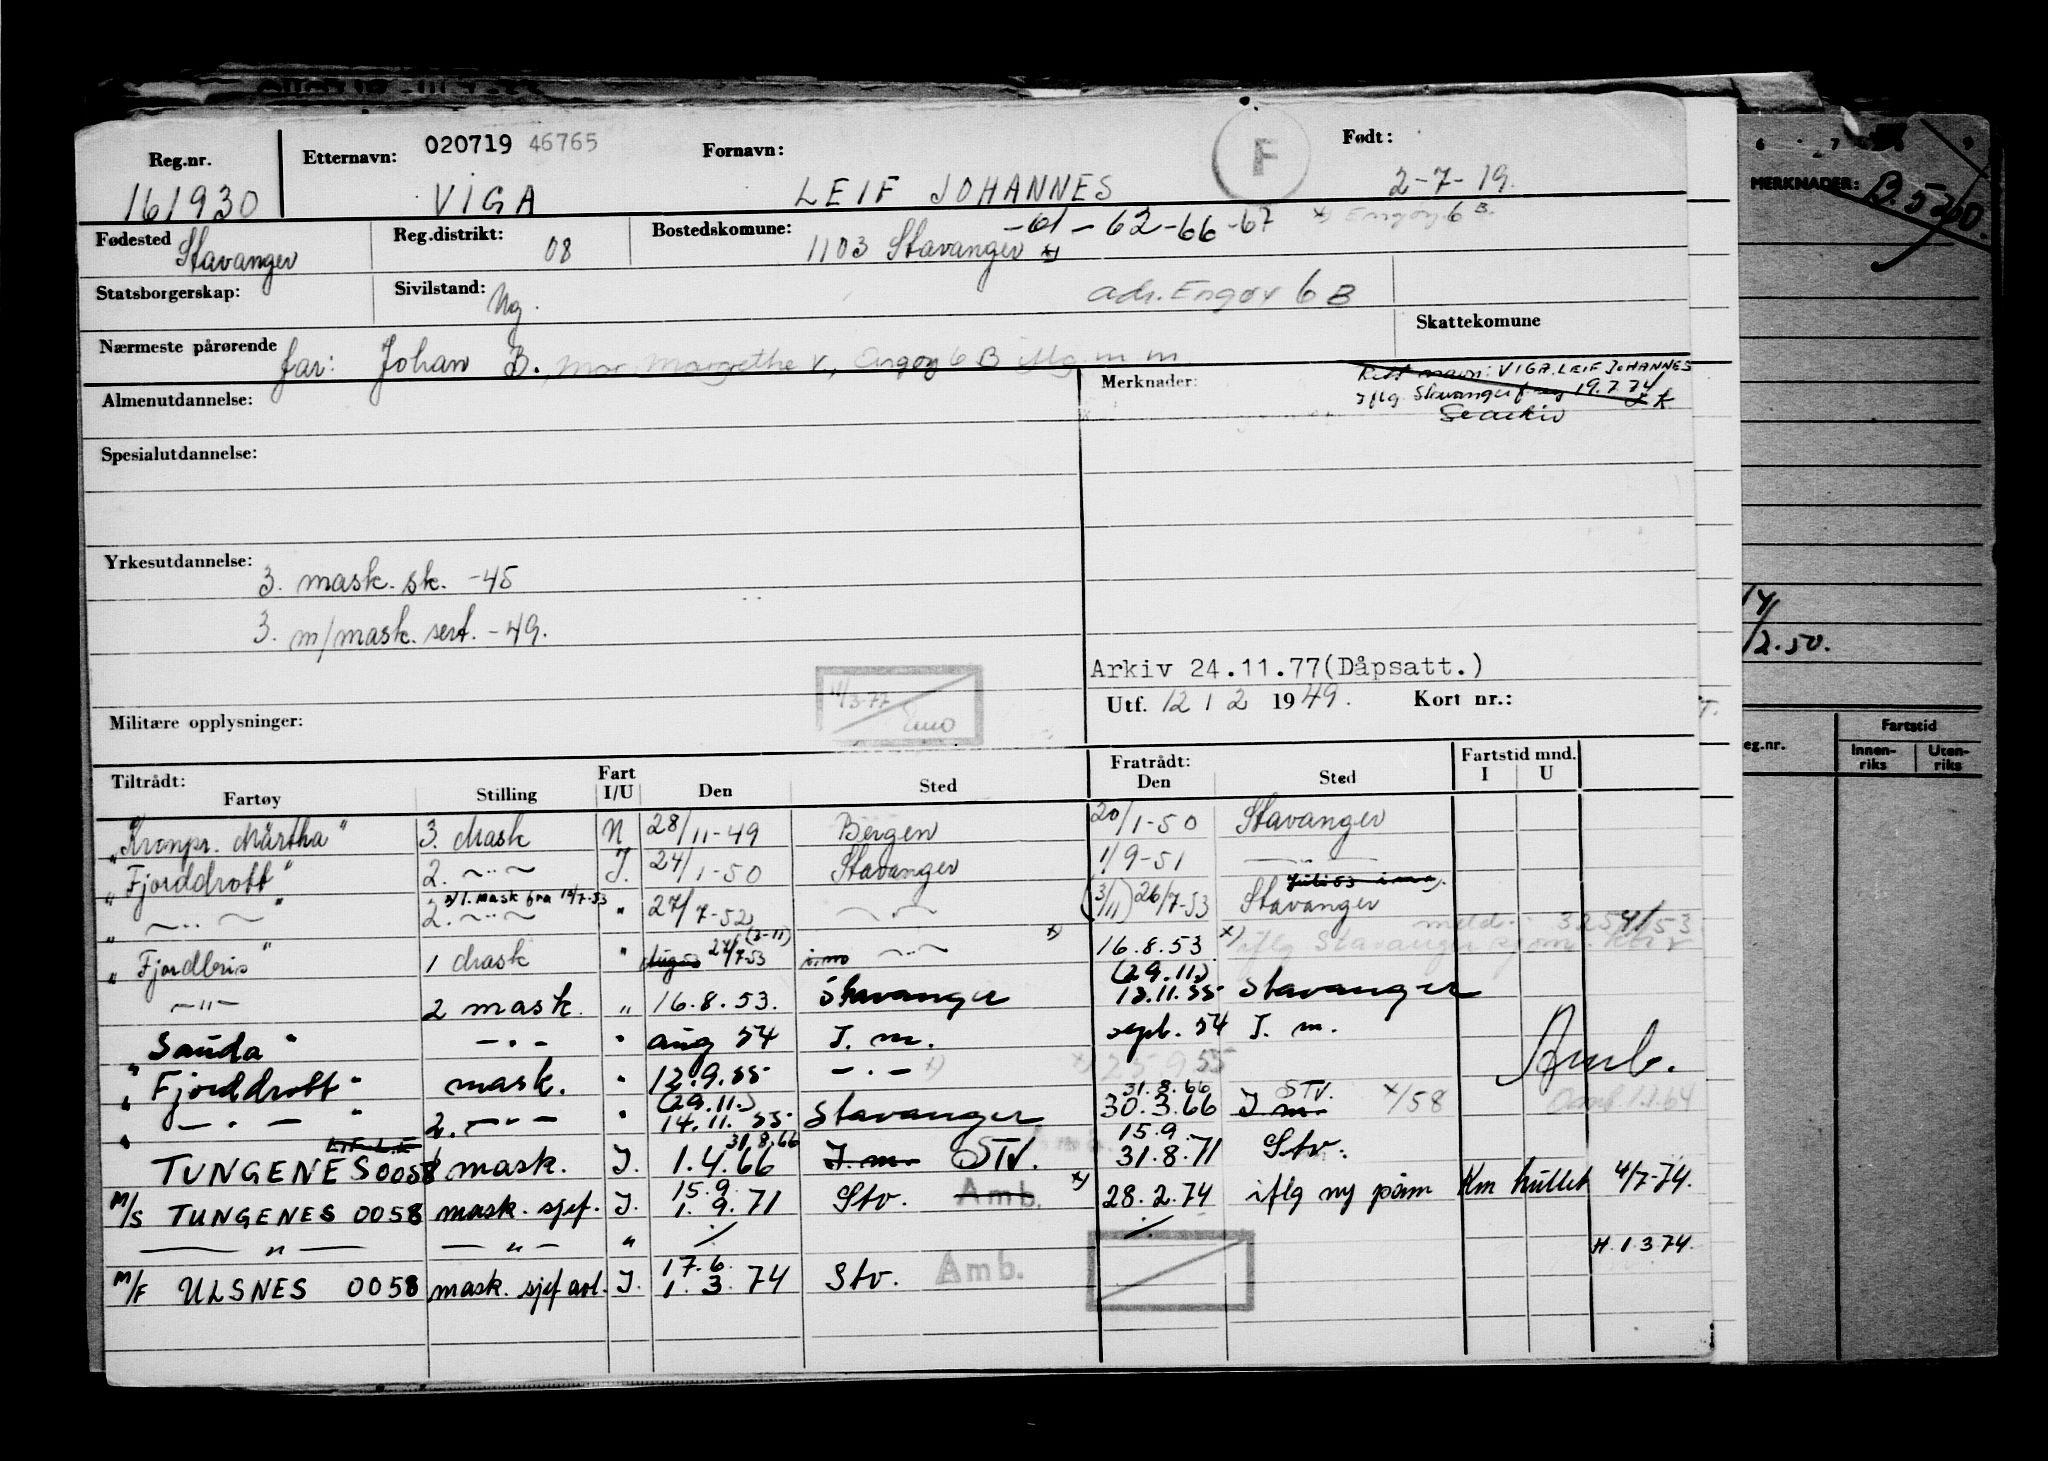 Reg.nr. Etternavn: 020719 46765 Fornavn: F Født:
161930 VIGA LEIF JOHANNES 2-7-19.
Fødested Stavanger Reg.distrikt: 08 Bostedskomune: 1103 Stavanger x) -61-62-66-67 x) Engøy 6 B.
Statsborgerskap: Sivilstand: Ug. adr. Engøy 6 B
Skattekomune
Nærmeste pårørende far: Johan B., mor Margrethe V, Engøy 6 B
Almenutdannelse: Merknader: Rett navn: VIGA, LEIF JOHANNES
iflg Stavanger 19.7.74
Se arkiv
Spesialutdannelse:
Yrkesutdannelse: 3. mask. sk. -45
3. m/mask. sert. -49.
Arkiv 24.11.77(Dåpsatt.)
Utf. 12 / 2 1949. Kort nr.:
Militære opplysninger:
Tiltrådt: Fartøy Stilling Fart I/U Den Sted Fratrådt: Den Sted Fartstid mnd. I U
"Kronpr. Märtha" 3. Mask N 28/11-49 Bergen 20/1-50 Stavanger
"Fjorddrott" 2. -"- I. 24/1-50 Stavanger 1/9-51 -"-
" -"- " 2. -"- x) 1. mask fra 15/7-53 " 27/7-52 -"- (3/11) 26/7-53 Stavanger
"Fjordbris" 1 Mask " 27/7-53 (3-11) -"- x) 16.8.53 x) iflg Stavanger
-"- 2 mask. " 16.8.53. Stavanger (29.11.) 13.11.55 Stavanger
"Sauda" -"- " aug 54 I. m. sept. 54 I. m.
"Fjorddrott" mask. " 12.9.55 -"- x) x) 25.9.55 Amb.
" -"- " 2. -"- " (29.11.) 14.11.55 Stavanger 31.8.66 30.3.66 I m. STV. x/58 Omb. 1.1.64
TUNGENES 0058 mask. I. 31.8.66 1.4.66 I. m. STV. 15.9. 31.8.71 Stv.
M/S TUNGENES 0058 mask. sjef. I. 15.9. 1.9.71 Stv. Amb. x) 28.2.74 iflg ny påm Km hullet 4/7-74.
-"- -"- " H. 1.3.74.
M/F ULSNES 0058 mask. sjef avl. I. 17.6. 1.3.74 Stv. Amb.
MERKNADER: B. 5260.
14/2.50.
eg.nr. Fartstid
Innen-riks Uten-riks